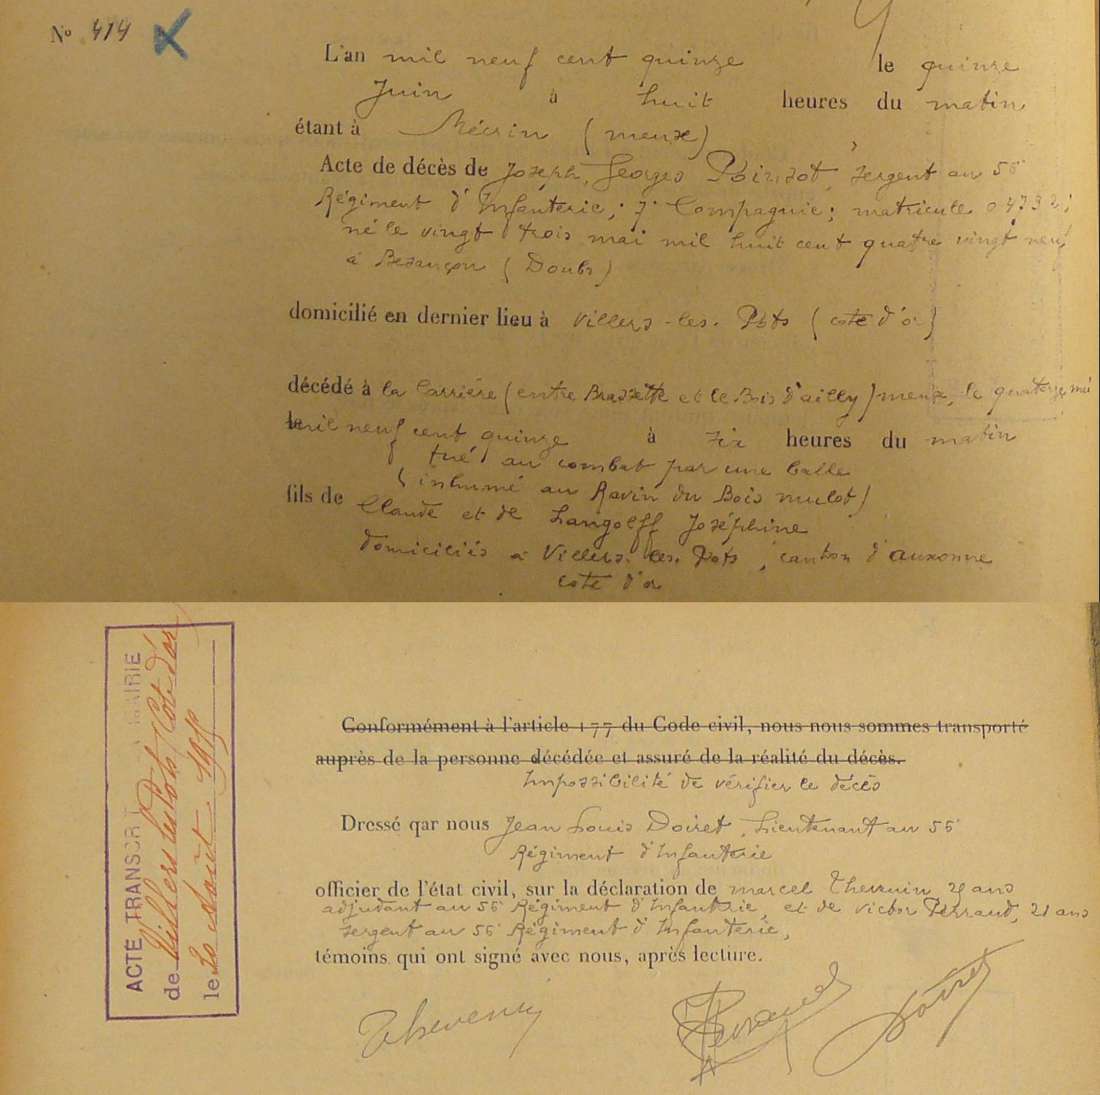 N° 414
L'an mil neuf cent quinze le quinze
Juin à huit heures du matin
étant à Mécrin (meuse)
Acte de décès de Joseph, Georges Poinsot, sergent au 56e
Régiment d'Infanterie, 7e Compagnie; matricule 04732;
né le vingt trois mai mil huit cent quatre vingt neuf
à Besançon (Doubs)
domicilié en dernier lieu à Villers-les-Pots (cote d'or)
décédé à la Carrière (entre Brasseitte et le Bois d'ailly) meuse, le quatorze mai
mil neuf cent quinze à six heures du matin
tué au combat par une balle
(inhumé au Ravin du Bois mulot)
fils de Claude et de Langolff Joséphine
domiciliés à Villers-les-Pots, canton d'auxonne
cote d'or
ACTE TRANSCRIT MAIRIE
de Villers les Pots (Côte d'or)
le 20 Août 1915
Conformément à l'article 77 du Code civil, nous nous sommes transporté
auprès de la personne décédée et assuré de la réalité du décès.
Impossibilité de vérifier le décès
Dressé qar nous Jean Louis Doiret, Lieutenant au 56e
Régiment d'Infanterie
officier de l'état civil, sur la déclaration de marcel Thevenin, ans
adjudant au 56e Régiment d'Infanterie, et de victor Perraud, 21 ans
sergent au 56e Régiment d'Infanterie,
témoins qui ont signé avec nous, après lecture.
Thevenin Perraud Doiret